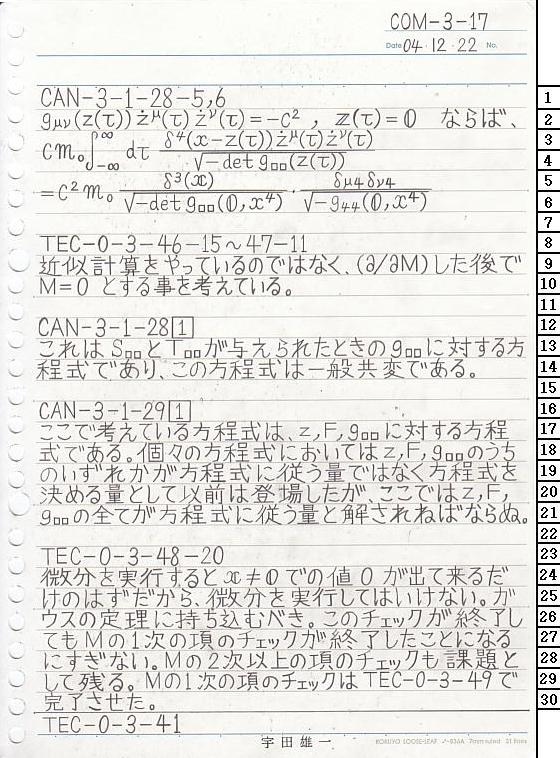 COM-3-17
Date 04・12・22 No.
CAN-3-1-28-5,6
gμν(z(τ))żμ(τ)żν(τ)=-c², 𝐳(τ)=𝟘 ならば、
cm₀∫_{-∞}^{∞} dτ δ⁴(x-z(τ))żμ(τ)żν(τ) / √-det g□□(z(τ))
=c²m₀ δ³(𝐱) / √-det g□□(𝟘,x⁴) · δμ4 δν4 / √-g44(𝟘,x⁴)
TEC-0-3-46-15～47-11
近似計算をやっているのではなく、(∂/∂M)した後で
M=0 とする事を考えている。
CAN-3-1-28[1]
これはS□□とT□□が与えられたときのg□□に対する方
程式であり、この方程式は一般共変である。
CAN-3-1-29[1]
ここで考えている方程式は、z,F,g□□に対する方程
式である。個々の方程式においてはz,F,g□□のうち
のいずれかが方程式に従う量ではなく方程式を
決める量として以前は登場したが、ここではz,F,
g□□の全てが方程式に従う量と解されねばならぬ。
TEC-0-3-48-20
微分を実行すると𝐱≠𝟘での値0が出て来るだ
けのはずだから、微分を実行してはいけない。ガ
ウスの定理に持ち込むべき。このチェックが終了し
てもMの1次の項のチェックが終了したことになる
にすぎない。Mの2次以上の項のチェックも課題と
して残る。Mの1次の項のチェックはTEC-0-3-49で
完了させた。
TEC-0-3-41
宇田雄一
KOKUYO LOOSE-LEAF ノ-836A 7mm ruled 31 lines
1
2
3
4
5
6
7
8
9
10
11
12
13
14
15
16
17
18
19
20
21
22
23
24
25
26
27
28
29
30